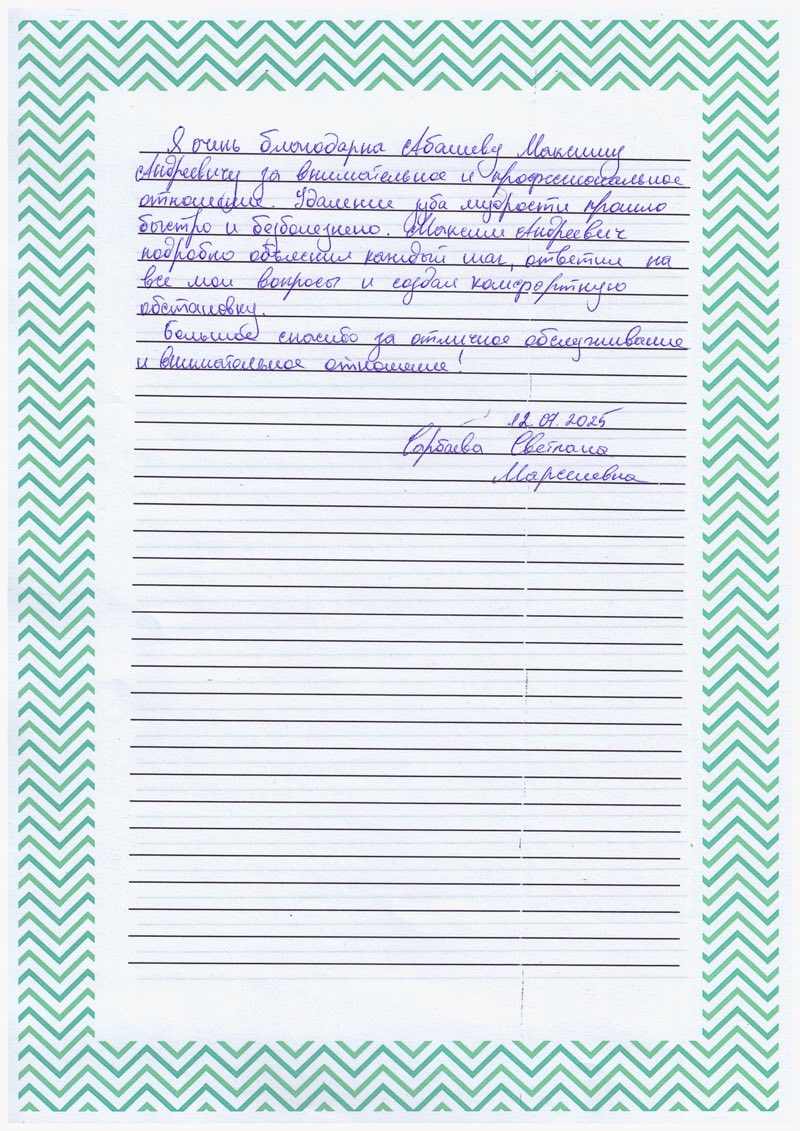 Я очень благодарна Абашеву Максиму
Андреевичу за внимательное и профессиональное
отношение. Удаление зуба мудрости прошло
быстро и безболезнено. Максим Андреевич
подробно объяснил каждый шаг, ответил на
все мои вопросы и создал комфортную
обстановку.
Большое спасибо за отличное обслуживание
и внимательное отношение!
12.07.2025
Сарбаева Светлана
Марселевна